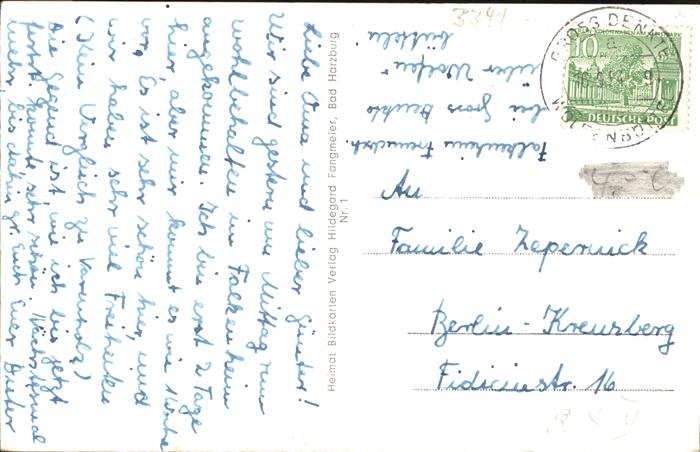 Liebe Oma und lieber Günter!
Wir sind gestern um Mittag rum
wohlbehalten in Falkenheim
angekommen. Ich bin erst 2 Tage
hier, aber mir kommt es wie 1 Woche
vor. Es ist sehr schön hier, und
wir haben sehr viel Freiheiten
(Kein Vergleich zu Varenholz)
Die Gegend ist, wie ich bis jetzt
feststl. konnte, sehr schön. Nächstesmal
mehr, bis dahin gr. Euch Euer Dieter
Heimat Bildkarten Verlag Hildegard Fangmeier, Bad Harzburg
Nr. 1
3341
Falkenheim
bei Gross Denkte
über Wolfen
büttel
GROSS DENKTE
WOLFENBÜ
10
DEUTSCHE POST
An
Familie Zepernick
Berlin-Kreuzberg
Fidicinstr. 16